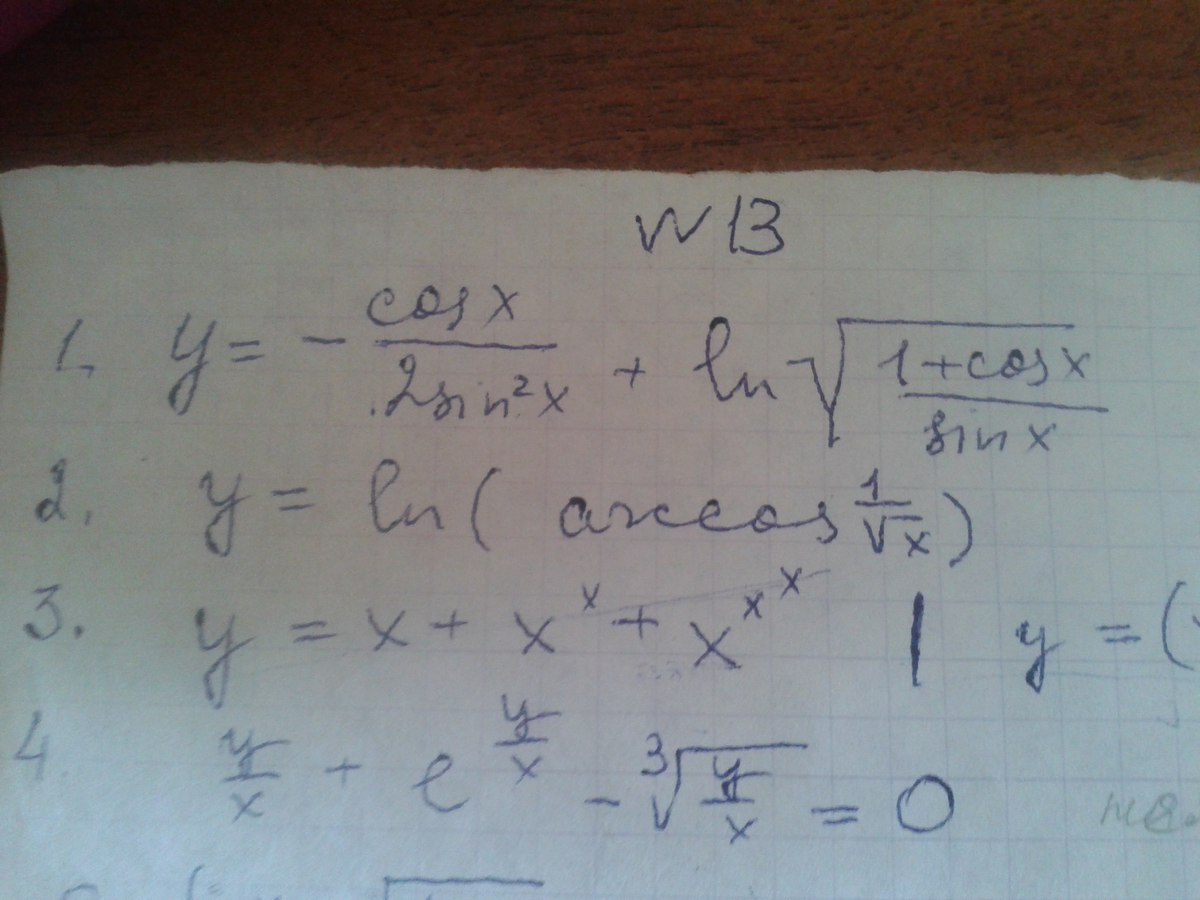 № 13
1. y = - cos x / 2sin²x + ln √((1+cos x) / sin x)
2. y = ln( arccos 1/√x )
3. y = x + x^x + x^x^x | y = (
4. y/x + e^(y/x) - ∛(y/x) = 0